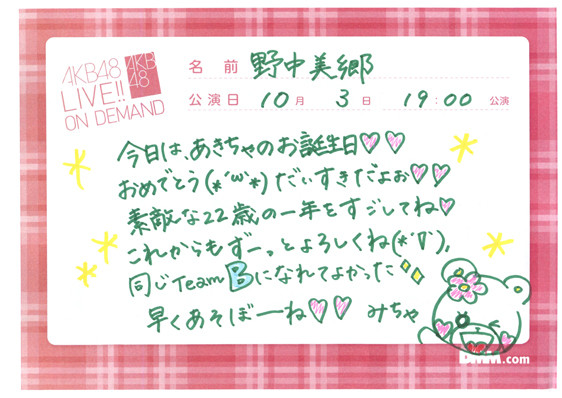 AKB48
LIVE!!
ON DEMAND
AKB
48
名前 野中美郷
公演日 10月 3日 19:00 公演
今日は、あきちゃのお誕生日♡♡
おめでとう(*´ω`*)だぃすきだよぉ♡♡
素敵な22歳の一年をすごしてね♡
これからもずーっとよろしくね(*´∇`),
同じTeam Bになれてよかった
早くあそぼーね♡♡ みちゃ
DMM.com